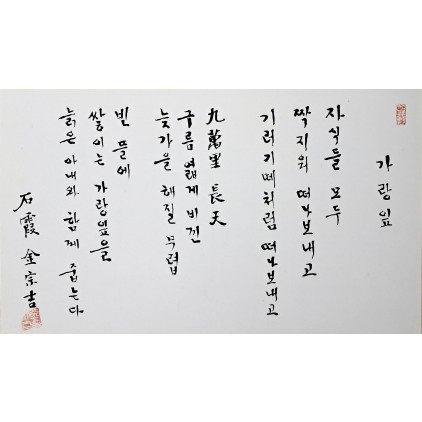 가랑잎
자식들 모두
짝지워 떠나보내고
기러기떼처럼 떠나보내고
九萬里 長天
구름 엷게 비낀
늦가을 해질 무렵
빈 뜰에
쌓이는 가랑잎을
늙은 아내와 함께 줍는다.
石霞 金宗吉